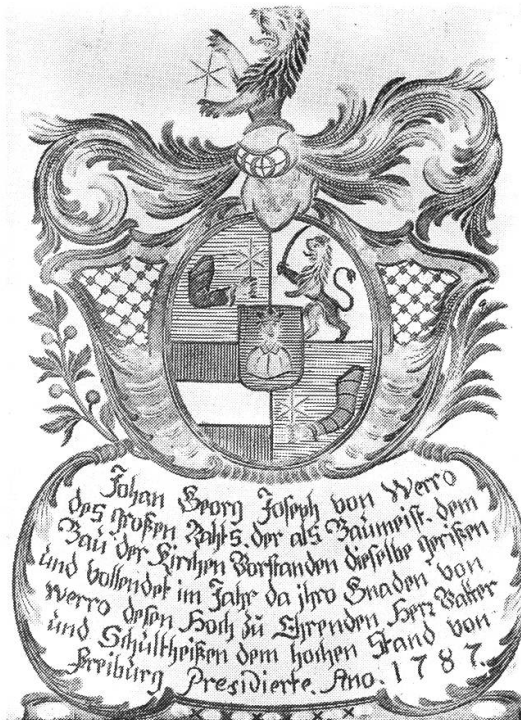 Johan Georg Joseph von Werro
des großen Rahts. der als Baumeist. dem
Bau der Kirchen Vorstanden dieselbe gerißen
und vollendet im Jahr da ihro Gnaden von
Werro desen Hoch zu Ehrenden Herr Vatter
und Schultheißen dem hochen Stand von
Freiburg Presidierte. Ano. 1787.